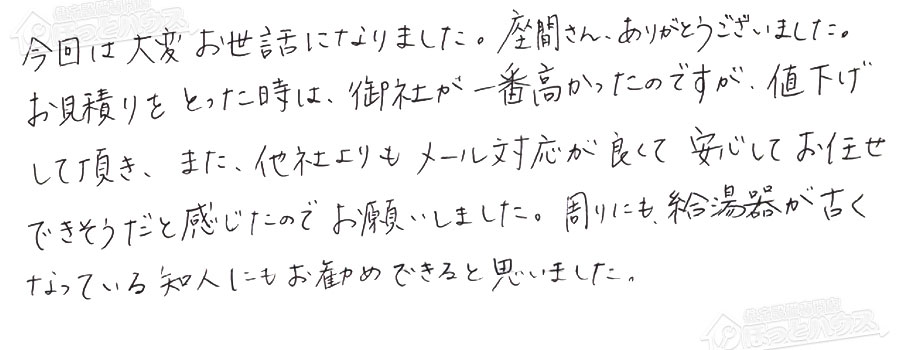 今回は大変お世話になりました。座間さん、ありがとうございました。
お見積りをとった時は、御社が一番高かったのですが、値下げ
して頂き、また、他社よりもメール対応が良くて安心してお任せ
できそうだと感じたのでお願いしました。周りにも、給湯器が古く
なっている知人にもお勧めできると思いました。
ほっとハウス